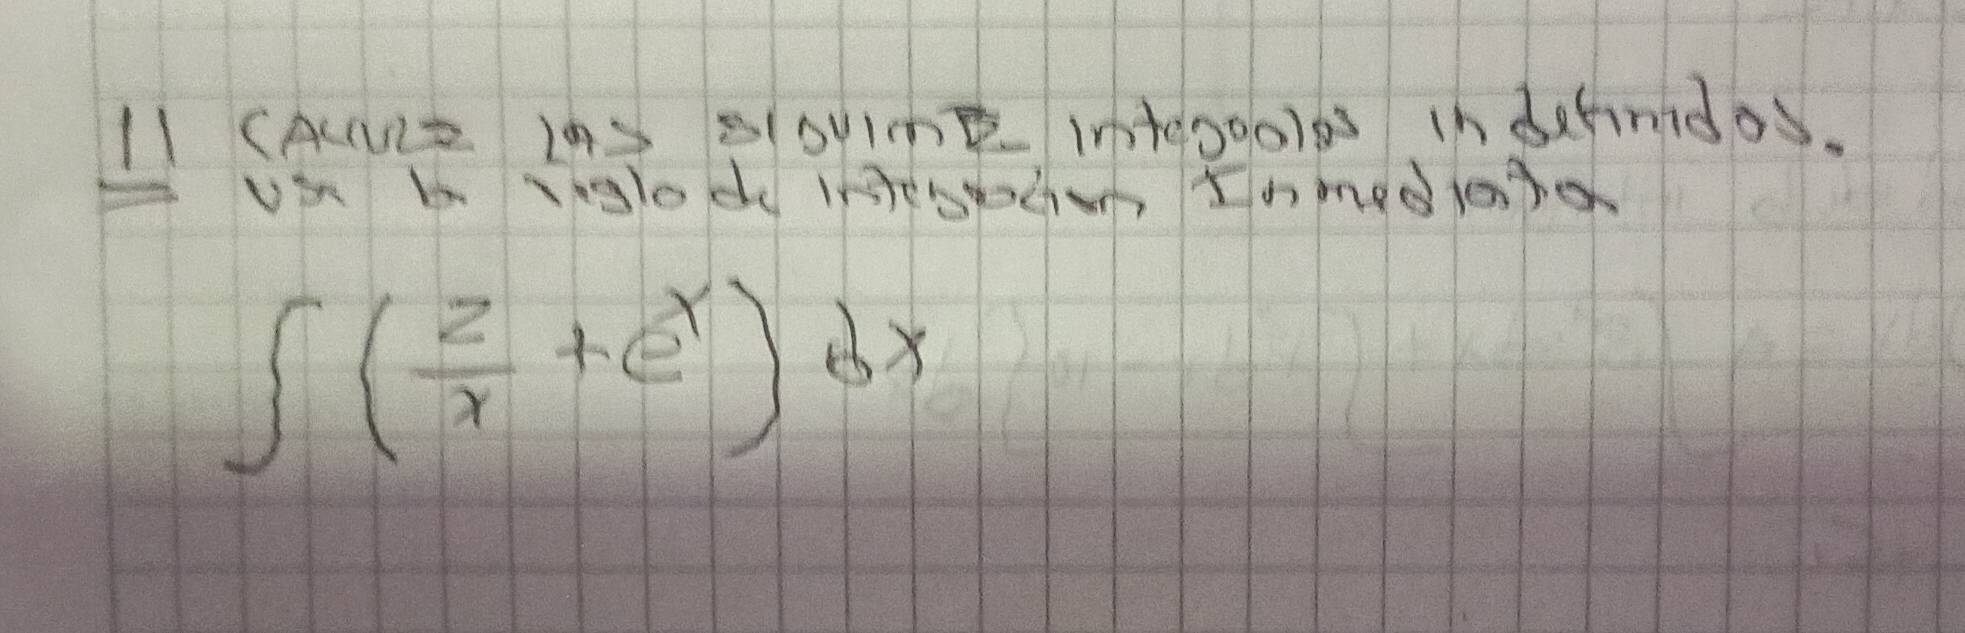 11 CAlcule las siguiente integrales indefinidas.
use la regla de integracion Inmediata
∫ ( 2/x + e^x ) dx